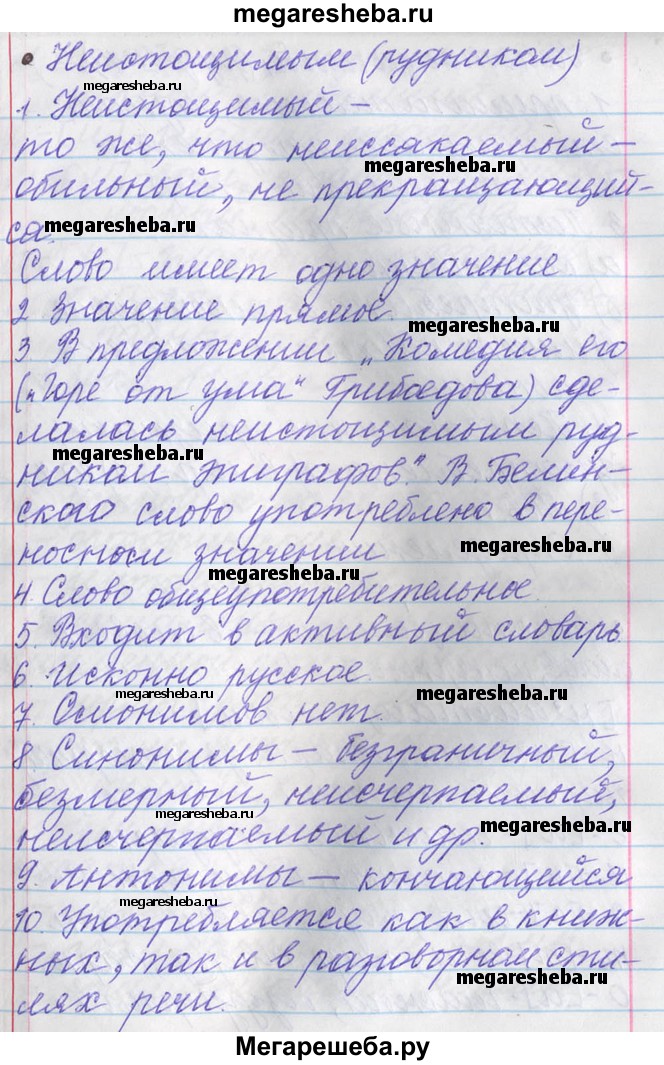 megaresheba.ru
• Неистощимым (рудником)
megaresheba.ru
1. Неистощимый –
то же, что неиссякаемый –
megaresheba.ru
обильный, не прекращающий-
ся.
megaresheba.ru
Слово имеет одно значение
2 Значение прямое.
megaresheba.ru
3. В предложении „Комедия его
(„Горе от ума“ Грибоедова) сде-
лалась неистощимым руд-
megaresheba.ru
ником эпиграфов." В. Белин-
ского слово употреблено в пере-
носном значении
megaresheba.ru
megaresheba.ru
4. Слово общеупотребительное.
5. Входит в активный словарь.
6. Исконно русское.
megaresheba.ru
megaresheba.ru
7. Омонимов нет.
8. Синонимы – безграничный,
безмерный, неисчерпаемый,
megaresheba.ru
неисчерпаемый и др.
megaresheba.ru
9. Антонимы – кончающийся
megaresheba.ru
10. Употребляется как в книж-
ных, так и в разговорном сти-
megaresheba.ru
лях речи.
Мегарешеба.ру